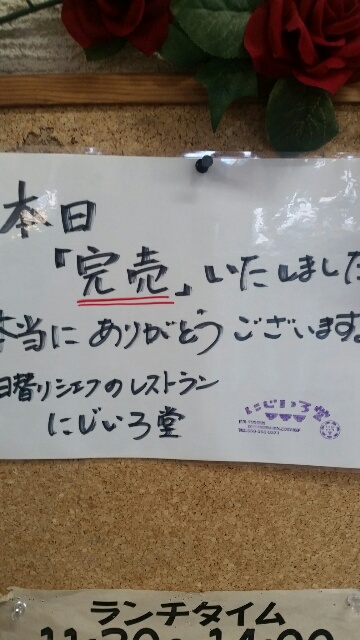 本日
「完売」いたしました
本当にありがとうございます。
日替りシェフのレストラン
にじいろ堂
にじいろ堂
ランチタイム
11:30〜14:00